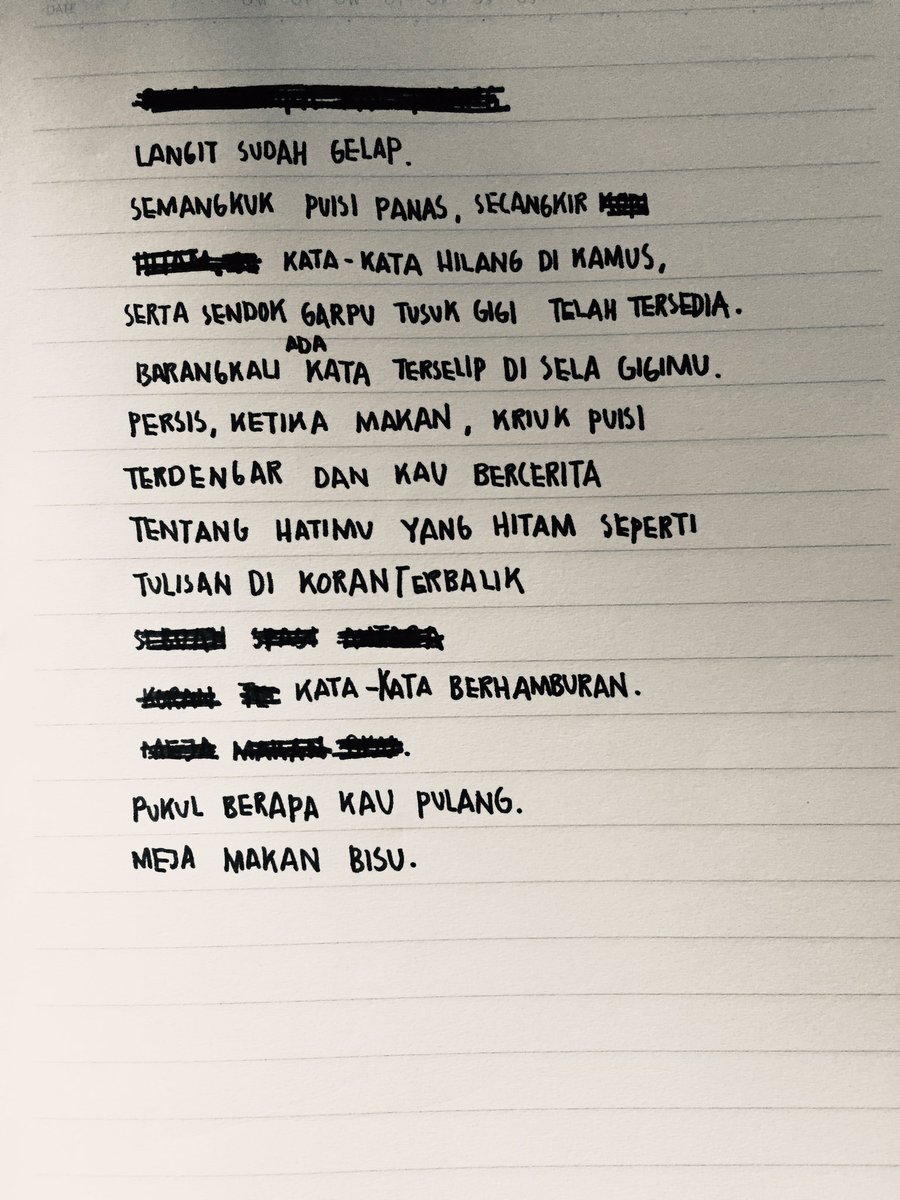 LANGIT SUDAH GELAP.
SEMANGKUK PUISI PANAS, SECANGKIR
KATA-KATA HILANG DI KAMUS,
SERTA SENDOK GARPU TUSUK GIGI TELAH TERSEDIA.
ADA
BARANGKALI KATA TERSELIP DI SELA GIGIMU.
PERSIS, KETIKA MAKAN, KRIUK PUISI
TERDENGAR DAN KAU BERCERITA
TENTANG HATIMU YANG HITAM SEPERTI
TULISAN DI KORAN TERBALIK
KATA-KATA BERHAMBURAN.
PUKUL BERAPA KAU PULANG.
MEJA MAKAN BISU.